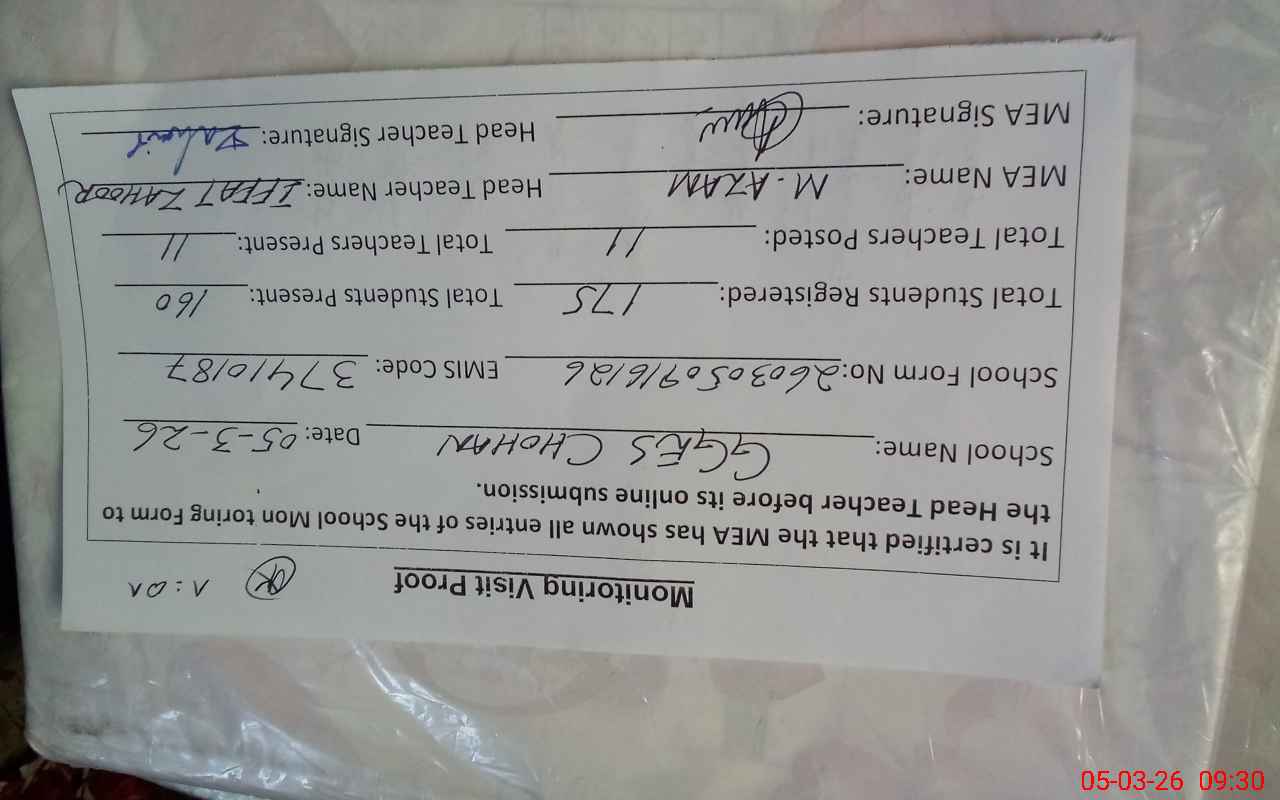 Monitoring Visit Proof OK
It is certified that the MEA has shown all entries of the School Mon toring Form to
the Head Teacher before its online submission.
School Name: GGES CHOHAN Date: 05-3-26
School Form No: 2603050916126 EMIS Code: 37410187
Total Students Registered: 175 Total Students Present: 160
Total Teachers Posted: 11 Total Teachers Present: 11
MEA Name: M. AZAM Head Teacher Name: IFFAT ZAHOOR
MEA Signature: Head Teacher Signature:
05-03-26 09:30